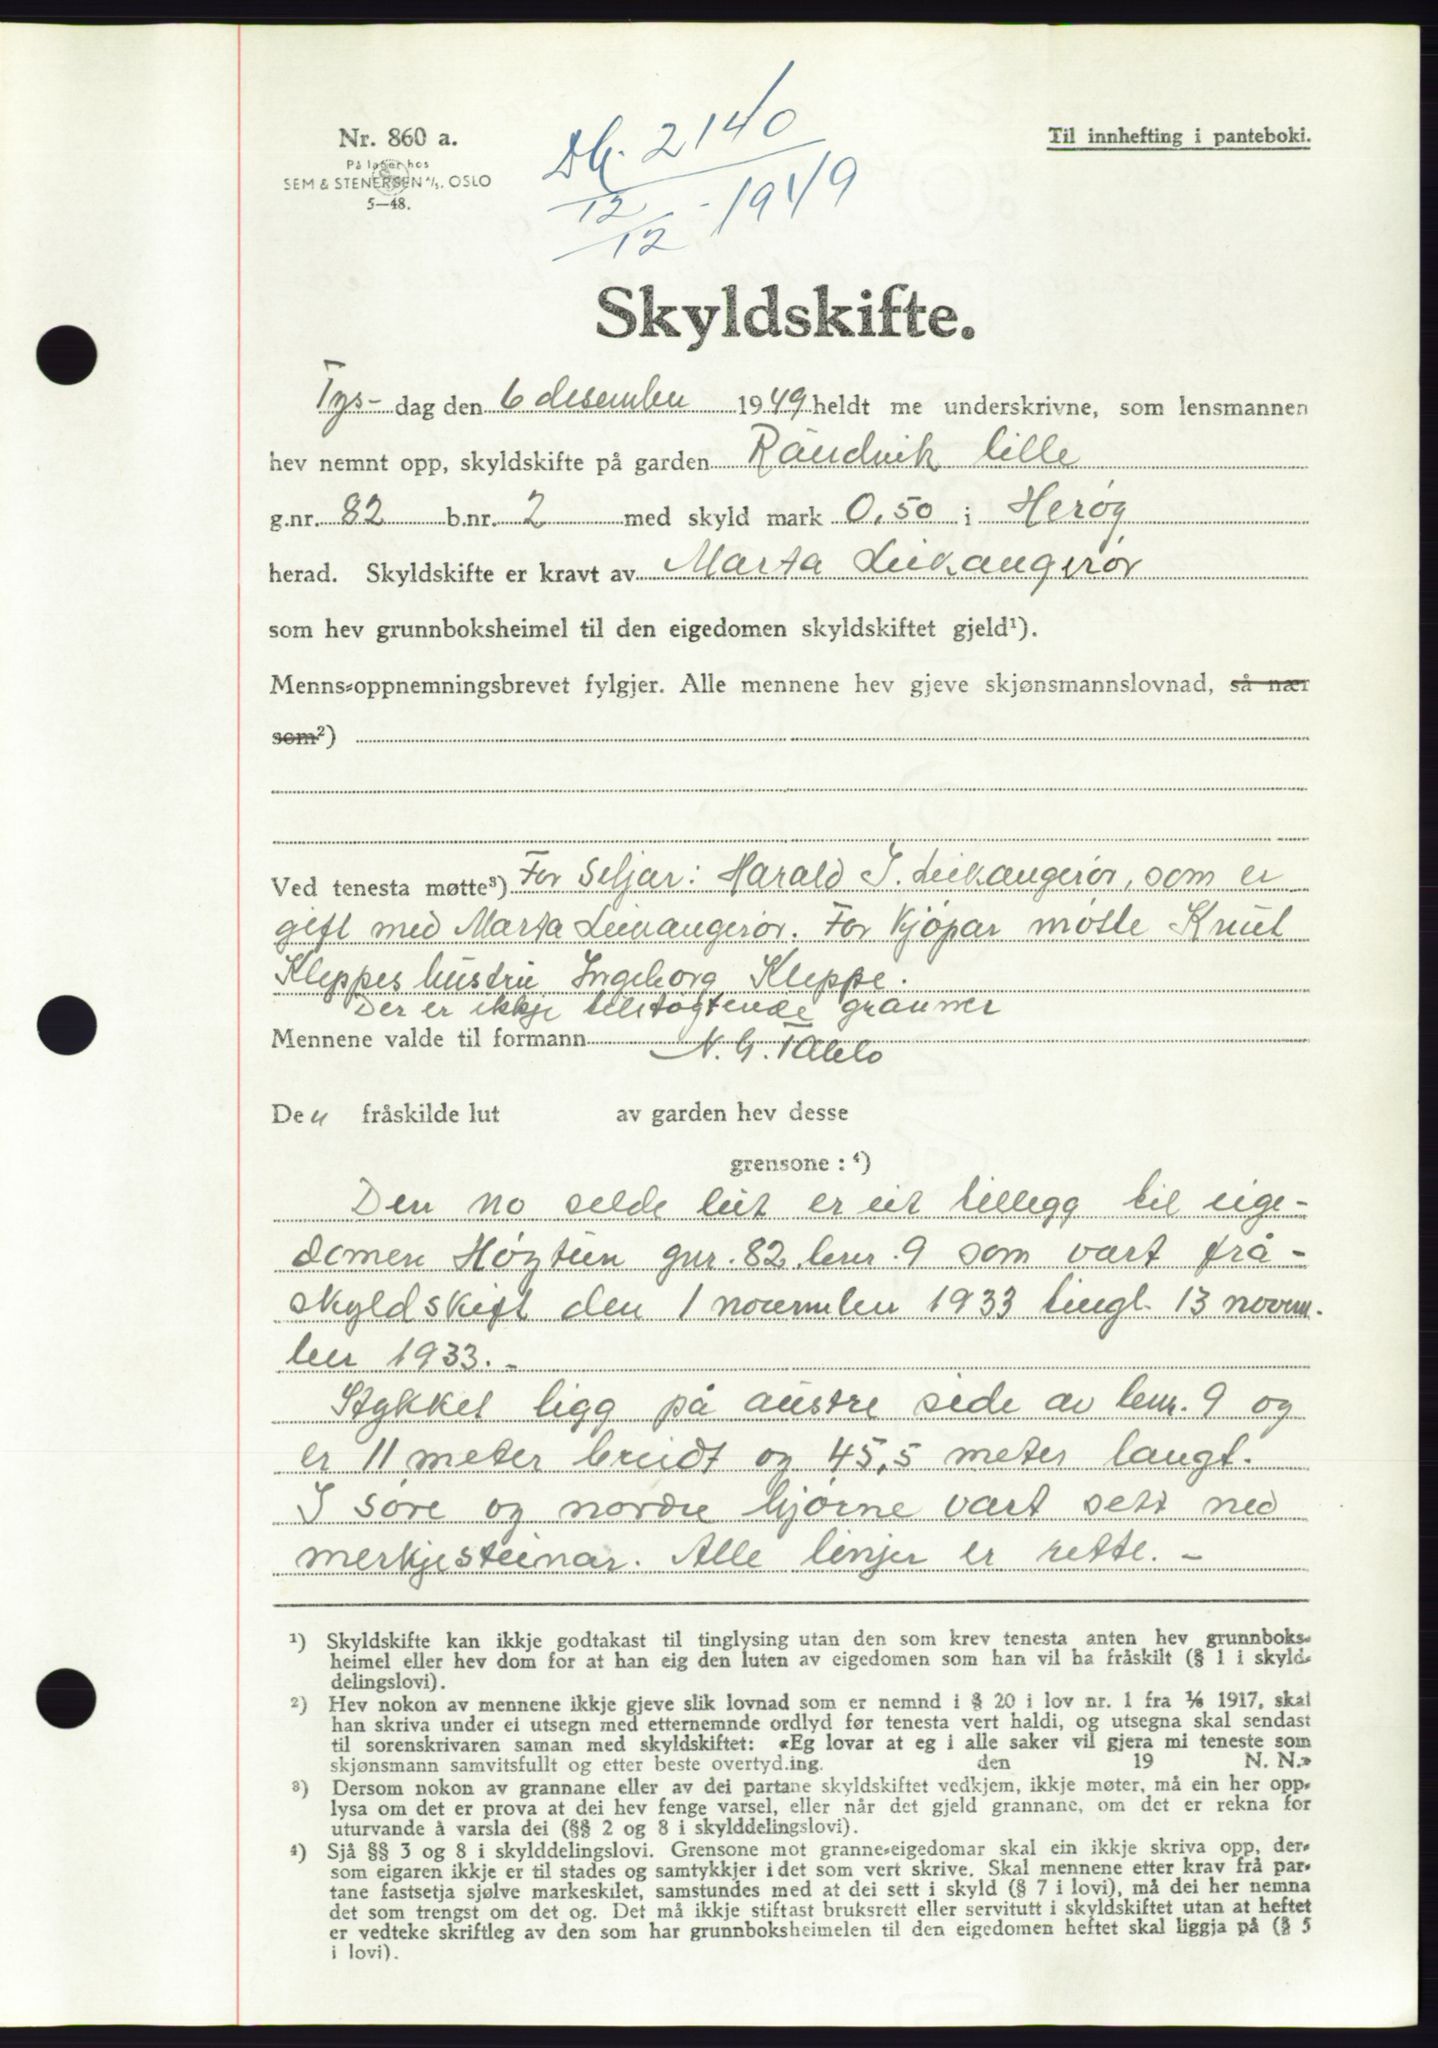 Nr. 860 a.
På lager hos
SEM & STENERSEN A/S. OSLO
5—48.
Dk. 2140
12/12 - 1949
Til innhefting i panteboki.
Skyldskifte.
Tys- dag den 6 desember 1949 heldt me underskrivne, som lensmannen
hev nemnt opp, skyldskifte på garden Råudvik lille
g.nr. 82 b.nr. 2 med skyld mark 0,50 i Herøy
herad. Skyldskifte er kravt av Marta Leikangerør
som hev grunnboksheimel til den eigedomen skyldskiftet gjeld¹).
Menns-oppnemningsbrevet fylgjer. Alle mennene hev gjeve skjønsmannslovnad, så nær
som²)
Ved tenesta møtte³) For Seljar: Harald J. Leikangerør, som er
gift med Marta Leikangerør. For Kjøpar møtte Knut
Kleppes hustru Ingeborg Kleppe.
Der er ikkje tilstøytende granner
Mennene valde til formann N. G. Tablo
Den fråskilde lut av garden hev desse
grensone: ⁴)
Den no selde lut er eit tillegg til eige-
domen Høgtun gnr. 82 bnr. 9 som vart frå-
skyldskift den 1 november 1933 tingl. 13 novem-
ber 1933. -
Stykket ligg på austre side av bnr. 9 og
er 11 meter breidt og 45,5 meter langt.
I søre og nordre hjørne vart sett ned
merkjesteinar. Alle linjer er rette. -
¹) Skyldskifte kan ikkje godtakast til tinglysing utan den som krev tenesta anten hev grunnboks-
heimel eller hev dom for at han eig den luten av eigedomen som han vil ha fråskilt (§ 1 i skyld-
delingslovi).
²) Hev nokon av mennene ikkje gjeve slik lovnad som er nemnd i § 20 i lov nr. 1 fra 1/6 1917, skal
han skriva under ei utsegn med etternemnde ordlyd før tenesta vert haldi, og utsegna skal sendast
til sorenskrivaren saman med skyldskiftet: «Eg lovar at eg i alle saker vil gjera mi teneste som
skjønsmann samvitsfullt og etter beste overtyding. den 19 N. N.»
³) Dersom nokon av grannane eller av dei partane skyldskiftet vedkjem, ikkje møter, må ein her opp-
lysa om det er prova at dei hev fenge varsel, eller når det gjeld grannane, om det er rekna for
uturvande å varsla dei (§§ 2 og 8 i skylddelingslovi).
⁴) Sjå §§ 3 og 8 i skylddelingslovi. Grensone mot granne-eigedomar skal ein ikkje skriva opp, der-
som eigaren ikkje er til stades og samtykkjer i det som vert skrive. Skal mennene etter krav frå par-
tane fastsetja sjølve markeskilet, samstundes med at dei sett i skyld (§ 7 i lovi), må dei her nemna
det som trengst om det og. Det må ikkje stiftast bruksrett eller servitutt i skyldskiftet utan at heftet
er vedteke skriftleg av den som har grunnboksheimelen til den eigedomen heftet skal liggja på (§ 5
i lovi).